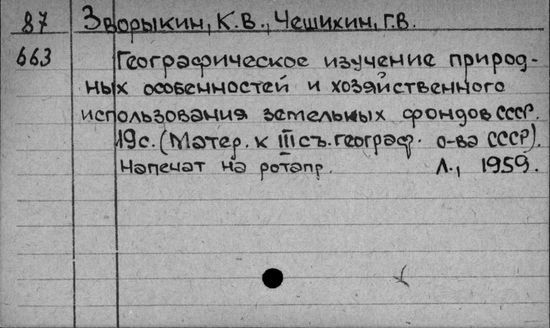 87 Зворыкин, К.В., Чешихин, Г.В.
663 Географическое изучение природ-
ных особенностей и хозяйственного
использования земельных фондов СССР.
19с. (Матер. к III съ. географ. о-ва СССР).
Напечат на ротапр. Л., 1959.